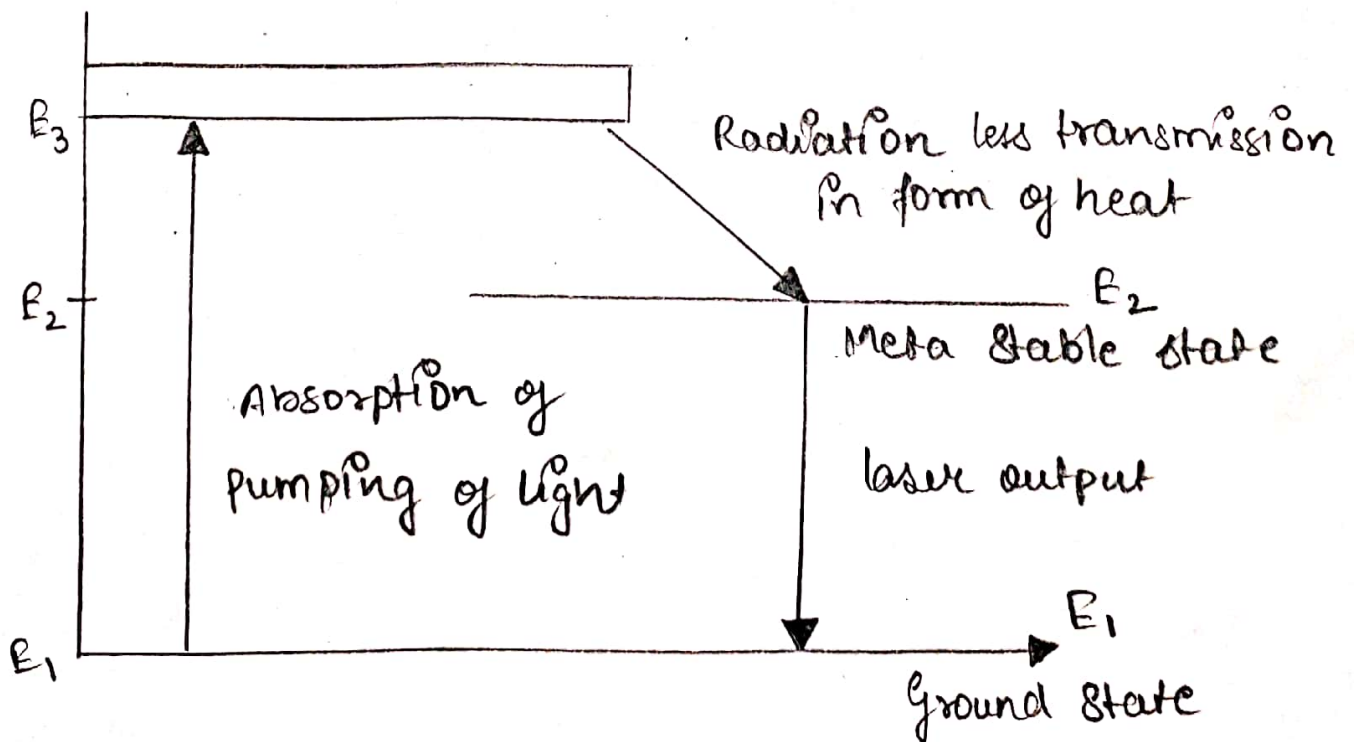 E3
Radiation less transmission
in form of heat
E2
E2
Meta Stable state
Absorption of
pumping of light
laser output
E1
E1
Ground State